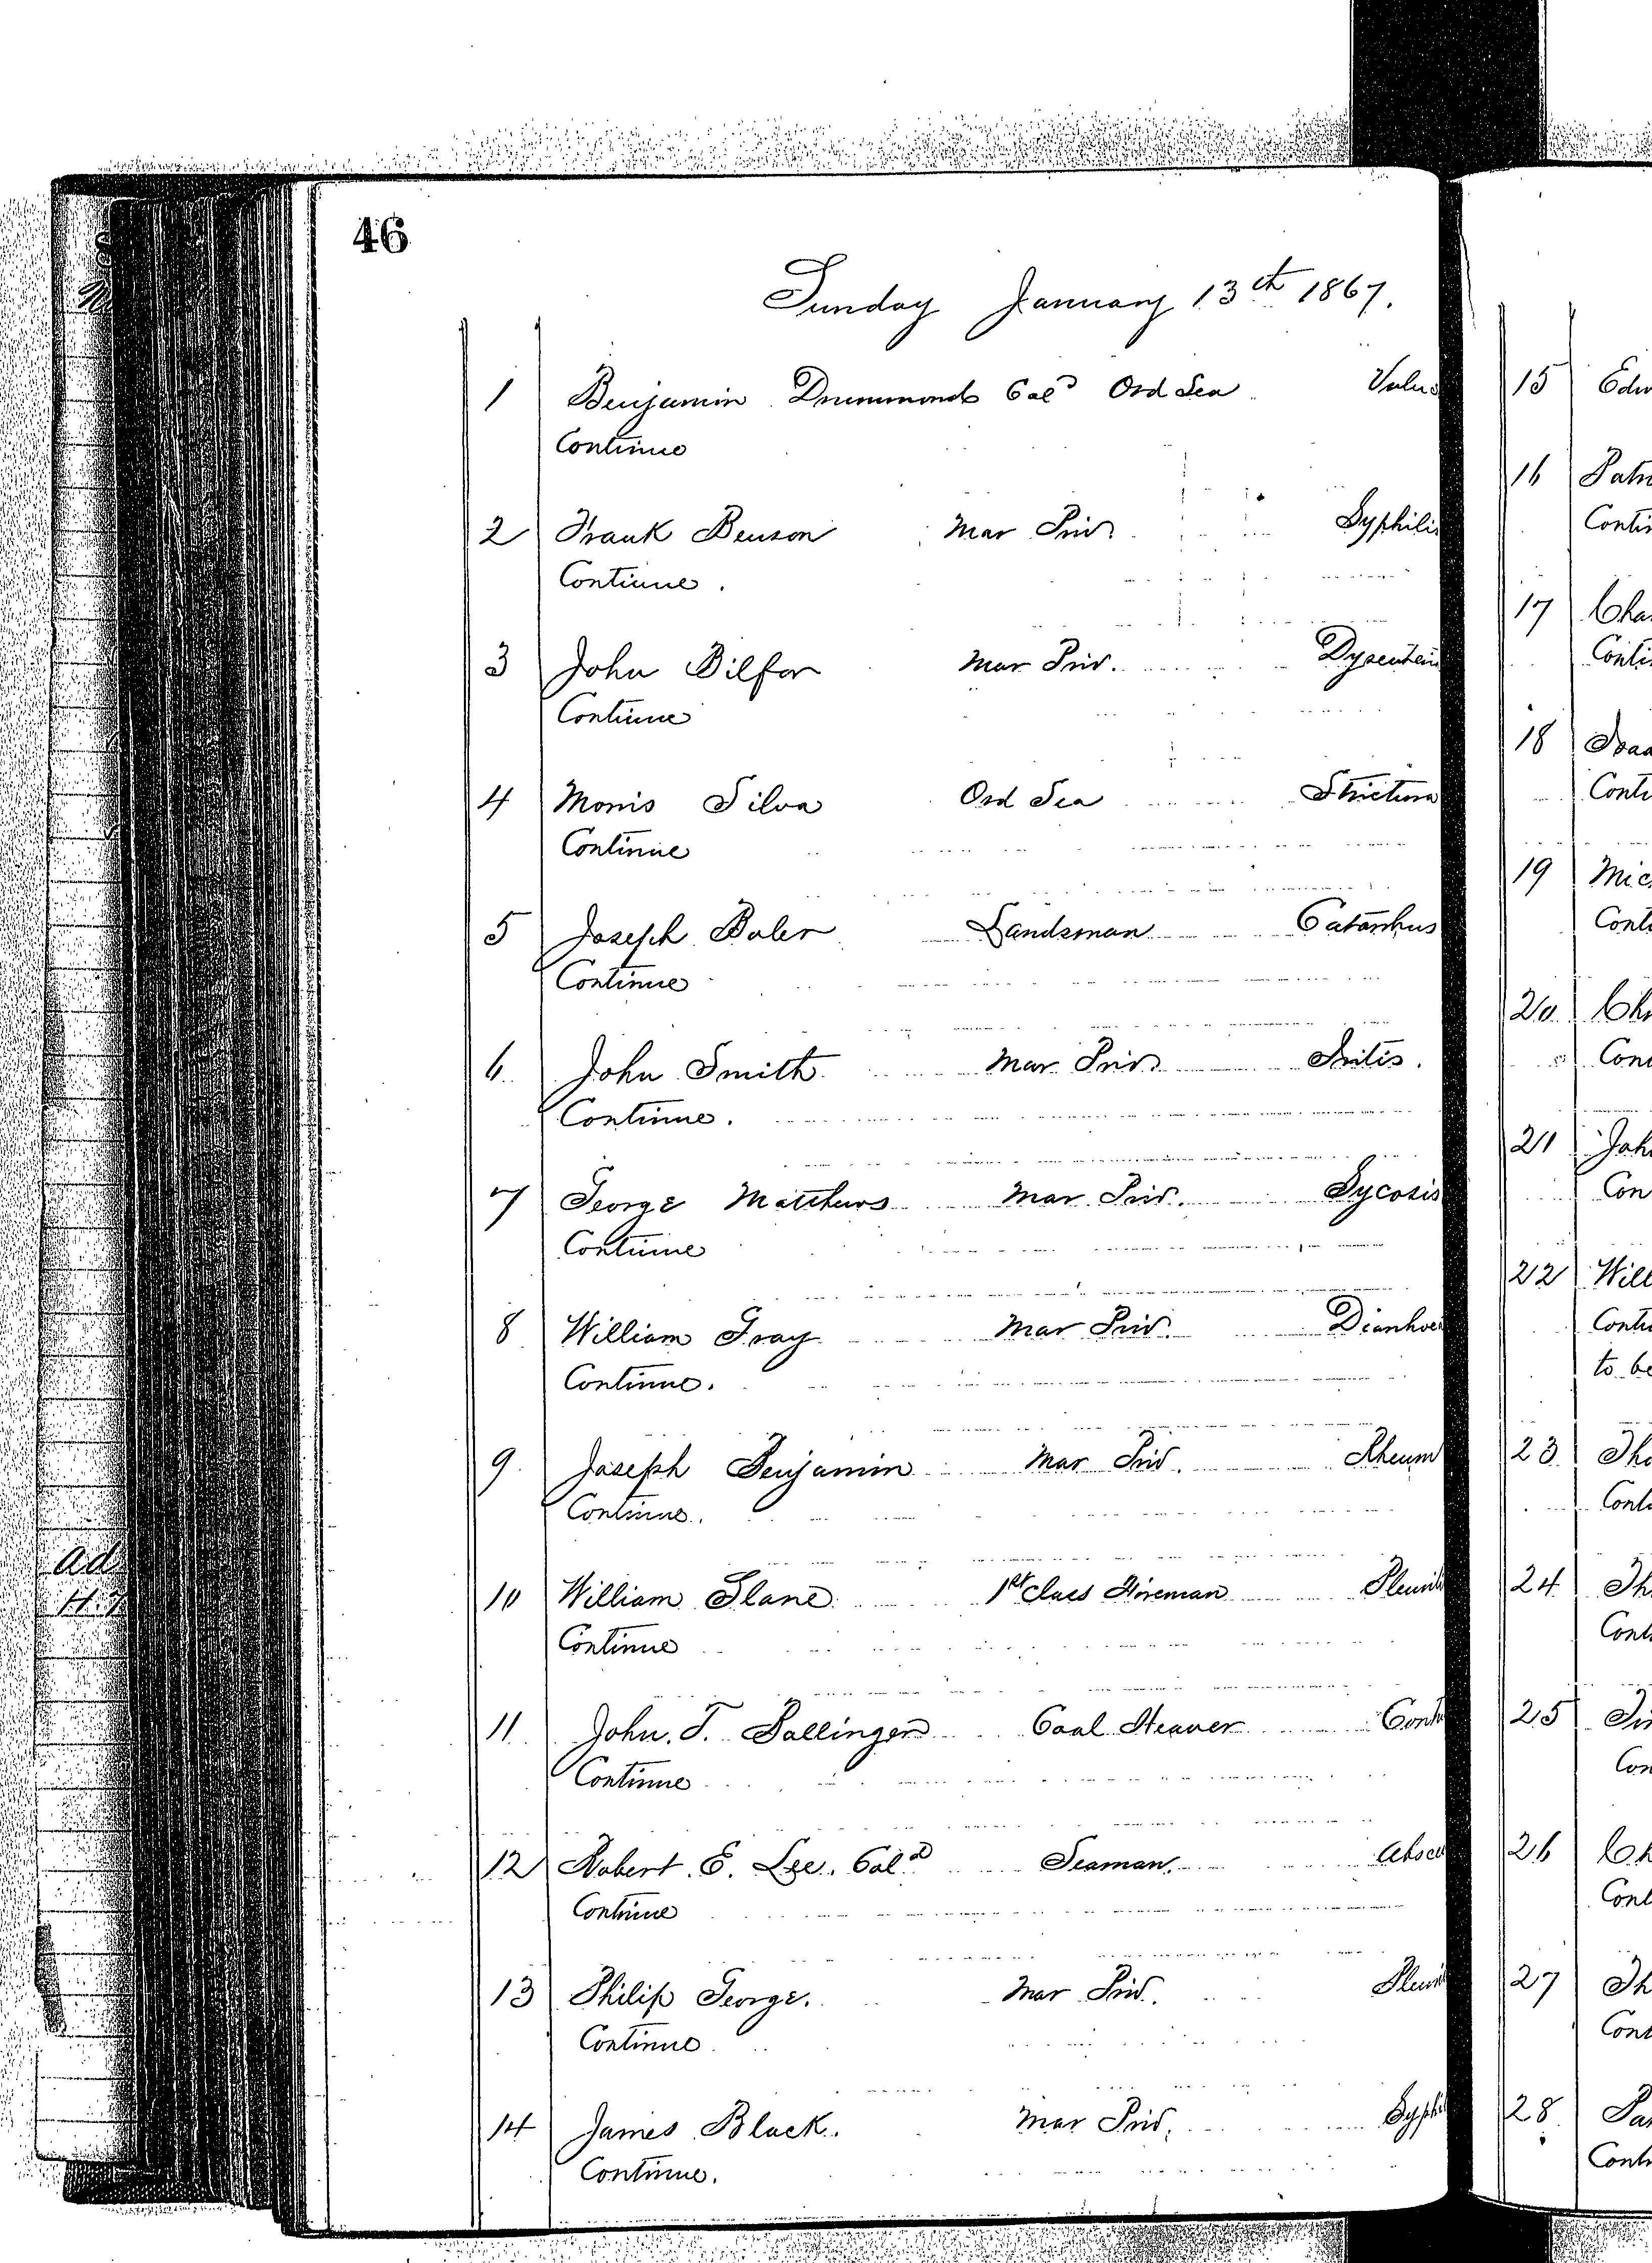 46
Sunday January 13th 1867.
1 Benjamin Drummonds Cold Ord Sea Vuln
Continue
2 Frank Benson Mar Priv. Syphilis
Continue.
3 John Bilfor Mar Priv. Dysenteri
Continue
4 Morris Silva Ord Sea Strictura
Continue
5 Joseph Baler Landsman Catarrhus
Continue
6 John Smith Mar Priv. Iritis.
Continue.
7 George Matthews Mar Priv. Sycosis
Continue
8 William Gray Mar Priv. Diarrhoe
Continue.
9 Joseph Benjamin Mar Priv. Rheum
Continue.
10 William Slane 1st Class Fireman Pleurit
Continue
11 John. T. Ballinger Coal Heaver Cont
Continue
12 Robert. E. Lee. Cold Seaman. Absce
Continue
13 Philip George. Mar Priv. Pleurit
Continue
14 James Black. Mar Priv. Syphil
Continue.
15 Edw
16 Patri
Contin
17 Cha
Conti
18 Isaa
Conti
19 Mic
Conti
20 Ch
Con
21 Joh
Con
22 Will
Conti
to be
23 Tho
Cont
24 Th
Cont
25
Con
26 Ch
Cont
27 Th
Cont
28
Conti
ad
H.